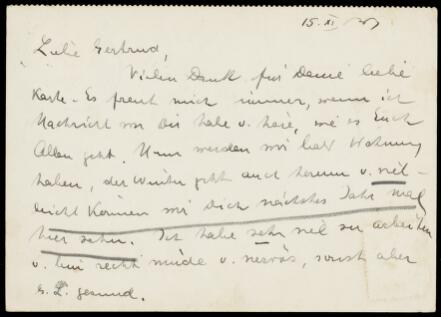 15. XI
Liebe Gertrud,
Vielen Dank für Deine liebe
Karte. Es freut mich immer, wenn ich
Nachricht von Dir habe u. höre, wie es Euch
Allen geht. Nun werden wir bald Wohnung
haben, der Winter geht auch herum u. viel-
leicht können wir Dich nächstes Jahr mal
hier sehen. Ich habe sehr viel zu arbeiten
u. bin recht müde u. nervös, sonst aber
G. L. gesund.